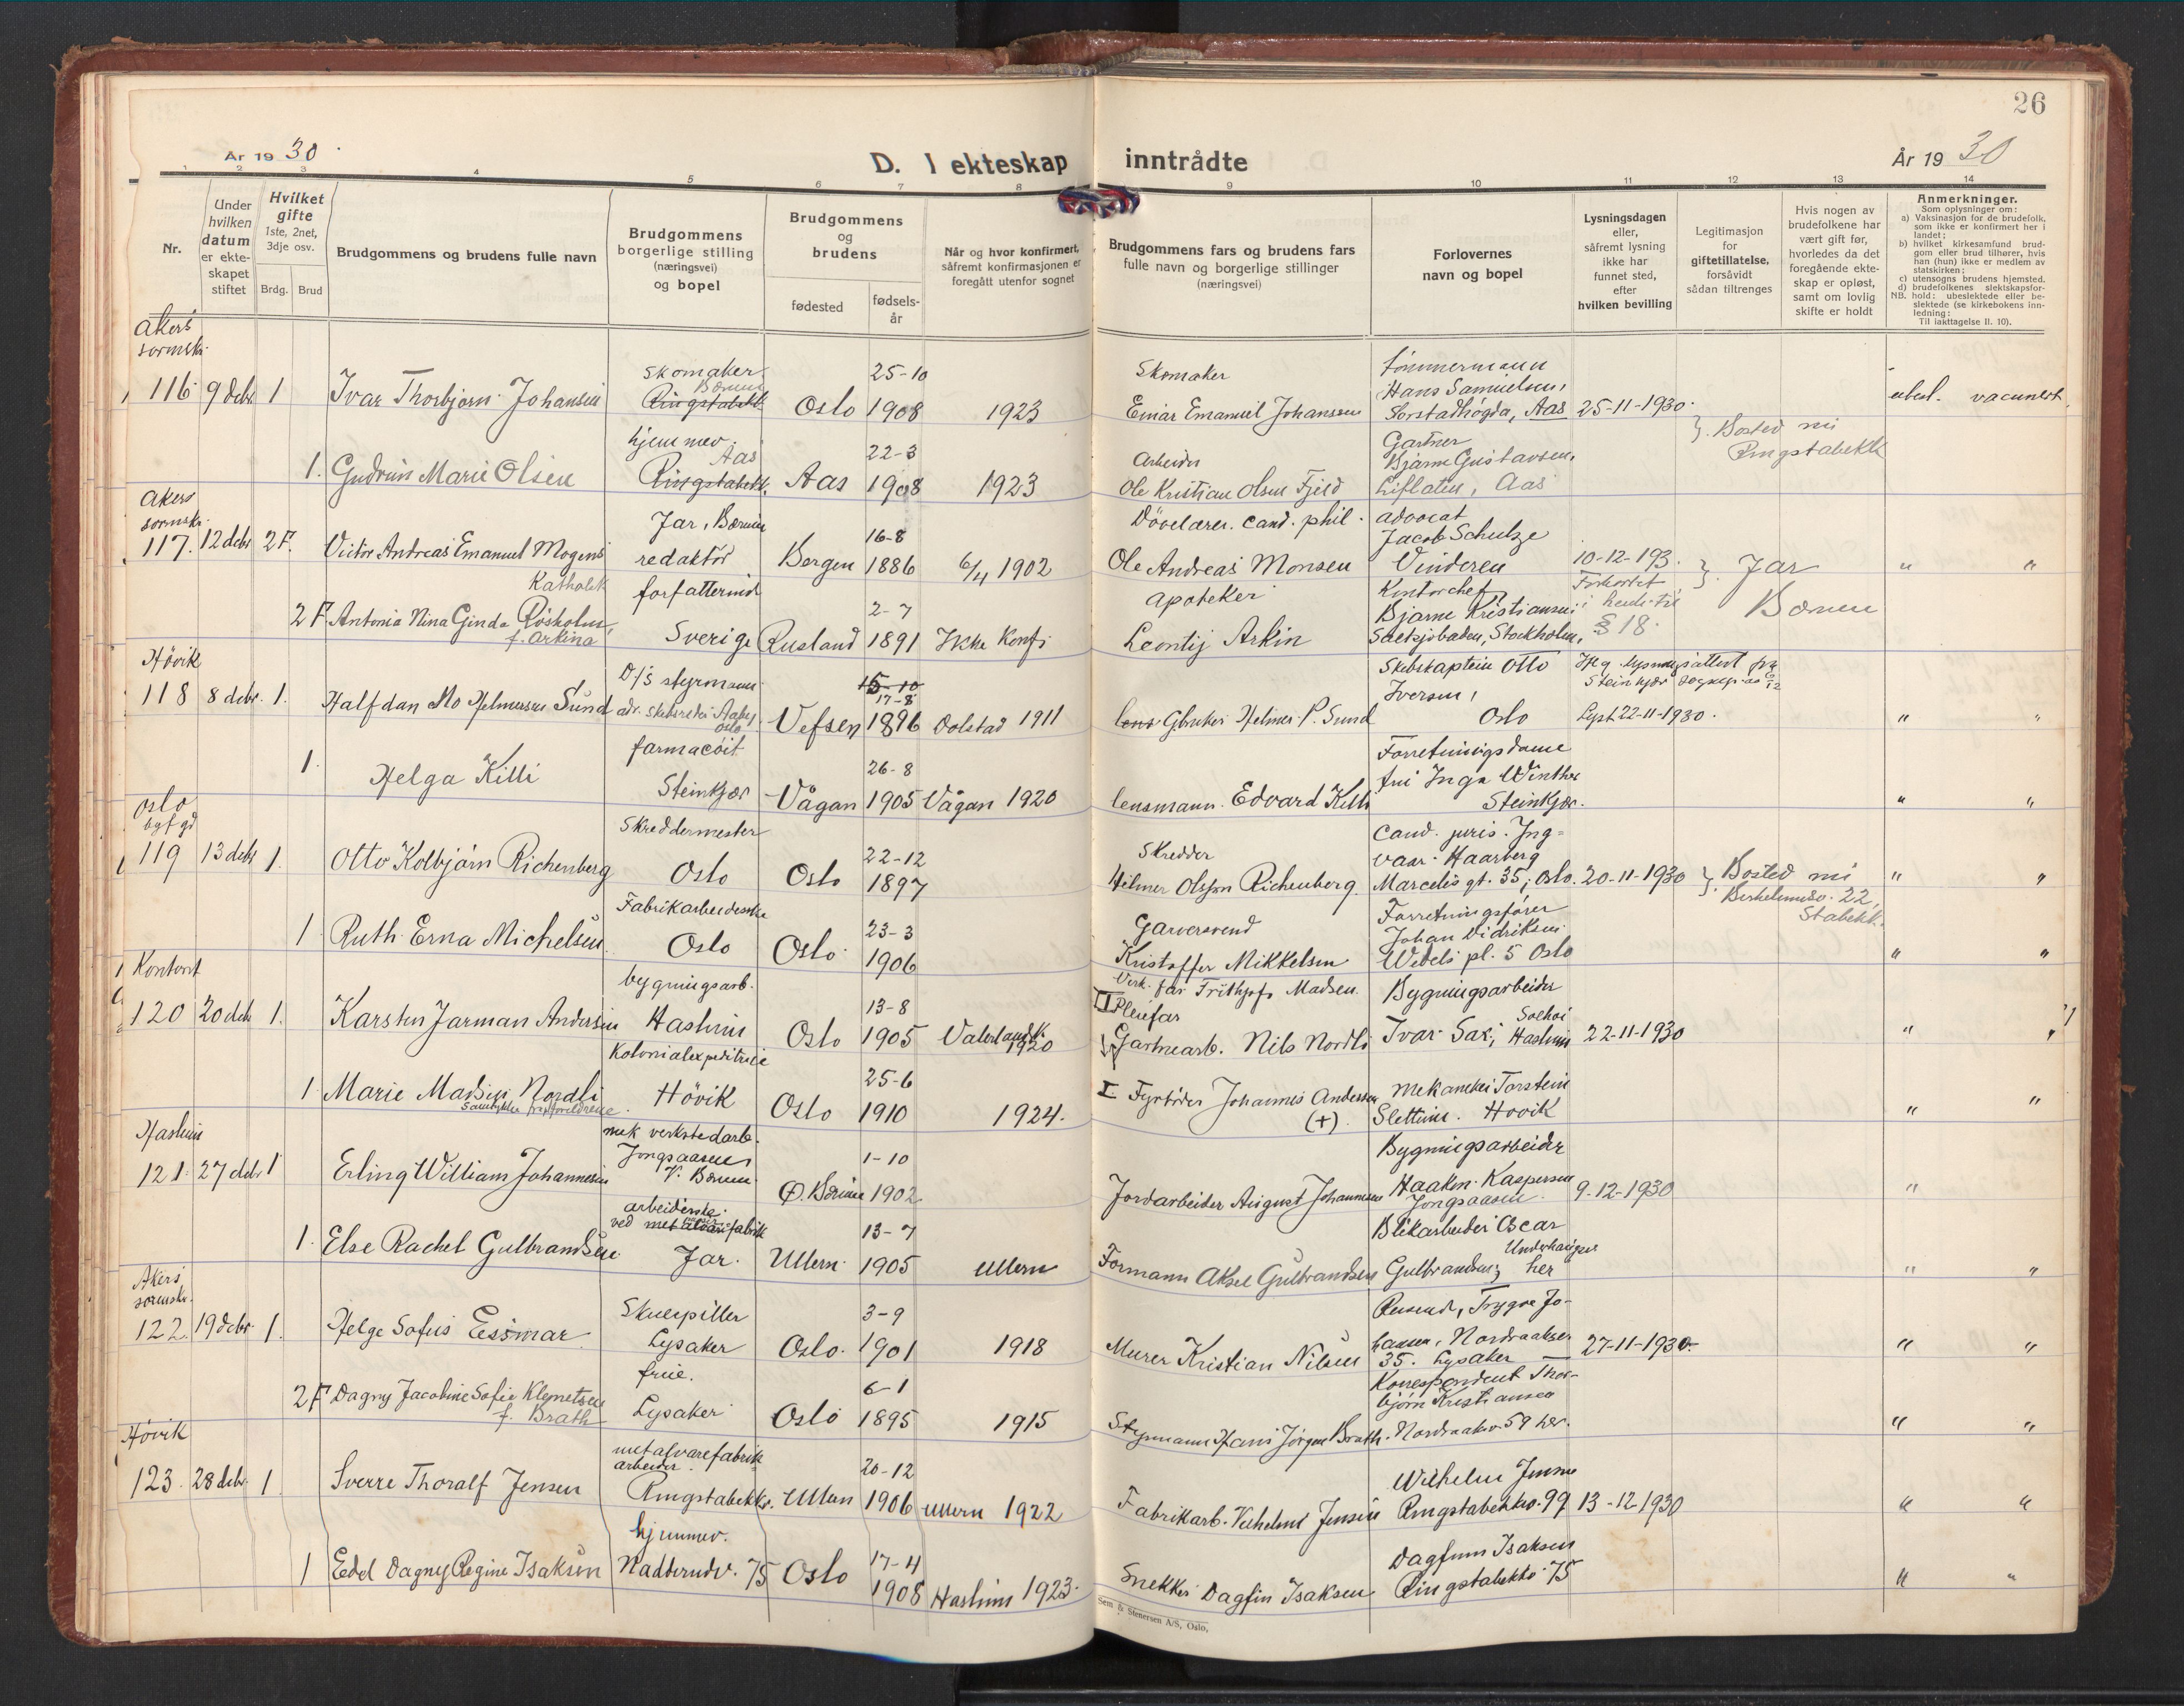 26
År 1930
D. I ekteskap inntrådte
År 1930
1 2 3 4 5 6 7 8 9 10 11 12 13 14
Nr.
Under hvilken datum er ekteskapet stiftet
Hvilket gifte 1ste, 2net, 3dje osv.
Brdg. Brud
Brudgommens og brudens fulle navn
Brudgommens borgerlige stilling (næringsvei) og bopel
Brudgommens og brudens
fødested
fødselsår
Når og hvor konfirmert, såfremt konfirmasjonen er foregått utenfor sognet
Brudgommens fars og brudens fars fulle navn og borgerlige stillinger (næringsvei)
Forlovernes navn og bopel
Lysningsdagen eller, såfremt lysning ikke har funnet sted, efter hvilken bevilling
Legitimasjon for giftetillatelse, forsåvidt sådan tiltrenges
Hvis nogen av brudefolkene har vært gift før, hvorledes da det foregående ekteskap er opløst, samt om lovlig skifte er holdt
Anmerkninger.
Som oplysninger om:
a) Vaksinasjon for de brudefolk, som ikke er konfirmert her i landet;
b) hvilket kirkesamfund brudgom eller brud tilhører, hvis han (hun) ikke er medlem av statskirken;
c) utensogns brudens hjemsted.
d) brudefolkenes slektskapsforhold: ubeslektede eller beslektede (se kirkebokens innledning:
NB. Til iakttagelse II. 10).
Akers sormskr.
116 9 debr 1 Ivar Thorbjørn Johansen
skomaker Bærum Ringstabekk
Oslo 25-10 1908 1923
Skomaker Einar Emanuel Johanssen
Tømmermann Hans Samuelsen, Sorstadhøgda, Aas
25-11-1930.
Bosted nu Ringstabekk
ubesl. vacunert.
1. Gudrun Marie Olsen
hjemmev. Aas Ringstabekk.
Aas 22-3 1908 1923
Arbeider Ole Kristian Olsen Fjeld
Gartner Bjarne Gustavsen, Liflaten, Aas
Akers sormskr.
117. 12 debr 2 F. Victor Andreas Emanuel Mogens
Katholek
Jar, Bærum redaktör
Bergen 16-8 1886 6/4 1902
Dövelærer. cand. phil. Ole Andreas Monsen
advocat Jacob Schulze Vinderen
10-12-193. Forkortet i henh. til § 18.
Jar Bærum
" "
2 F. Antonia Nina Ginda Rösholm, f. Arkina
forfatterinde
Sverige Rusland 2-7 1891 Ikke Konf;
apoteker Leontij Arkin
Kontorchef Bjarne Kristiansen Saltsjöbaden, Stockholm,
Hövik
118 8 debr. 1. Halfdan Mo Helmersen Sund
D/S styrmann adr. Skibsreder Aaby Oslo
Vefsen 15-10 17-8 1896 Dolstad 1911
Gbruker Helmer P. Sund
Skibskaptein Otto Iversen, Oslo
Iflg. lysningsattest fra Steinkjær sognepr.
Lyst 22-11-1930.
" "
1. Helga Killi
farmaceöit Steinkjær
Vågan 26-8 1905 Vågan 1920
lensmann. Edvard Killi
Forretningsdame fru Inga Winther Steinkjær.
" "
Oslo byfgd
119 13 debr 1. Otto Kolbjörn Richenberg
Skreddermester Oslo
Oslo 22-12 1897
Skredder Hilmer Olsson Richenberg.
Cand. juris. Ingvaar Haarberg Marcelis gt. 35, Oslo.
20-11-1930
Bosted nu 22, Stabekk.
" "
1 Ruth Erna Michelsen
Fabrikarbeiderske Oslo
Oslo 23-3 1906
Garversvend Kristoffer Mikkelsen
Forretningsfører Johan Didriksen Wedels pl. 5 Oslo
" "
Kontoret
120 20 debr 1. Karsten Jarman Andersen
bygningsarb. Haslum
Oslo 13-8 1905 Vaterlands k. 1920
II Virk. far Frithjofs Madsen.
Pleiefar Gartnearb. Nils Nordli
Bygningsarbeider Ivar Sax; Solhøi Haslum
22-11-1930
" "
1. Marie Madsen Nordli
Samtykke fra foreldrene.
Kolonialexpeditrice Hövik
Oslo 25-6 1910 1924.
I Fyrböter Johannes Andersen (+).
Mekaniker Torstein Slettum. Hövik
" "
Haslum
121. 27 debr 1 Erling William Johannesen
mek verkstedarb. Jongsaasen V. Bærum
Ø. Bærum 1-10 1902.
Jordarbeider August Johannesen
Bygningsarbeider Haakon Kaspersen Jongsaasen
9-12-1930
"
1. Else Rachel Gulbrandsen
arbeiderske ved metalvarefabrik Jar.
Ullern 13-7 1905 Ullern
Formann Aksel Gulbrandsen
Blikarbeider Oscar Gulbrandsen, her
" "
Akers sormskr.
122. 19 debr. 1. Helge Sofus Essmar
Skuespiller Lysaker
Oslo. 3-9 1901 1918
Murer Kristian Nilsen
Reisend, Trygve Johansen, Nordraaksv 35. Lysaker
27-11-1930.
" "
2 F Dagny Jacobine Sofie Klemetsen f. Brath
frue. Lysaker
Oslo 6-1 1895 1915
Styrmann Hans Jörgen Brath.
Korrespondent Thorbjörn Kristiansen Nordraaksv. 59 her.
" "
Hövik
123. 28 debr. 1 Sverre Thoralf Jensen
metalvarefabrik arbeider. Ringstabekkv.
Ullern 20-12 1906 Ullern 1922
Fabrikarb. Vilhelm Jensen
Wilhelm Jensen Ringstabekkv. 99
13-12-1930
" "
1 Edel Dagny Regine Isaksen
hjemmev. Nadderudv. 75
Oslo 17-4 1908 Haslum 1923.
Snekker Dagfin Isaksen
Dagfinn Isaksen Ringstabekkv. 75
" "
Sem & Stenersen A/S, Oslo,